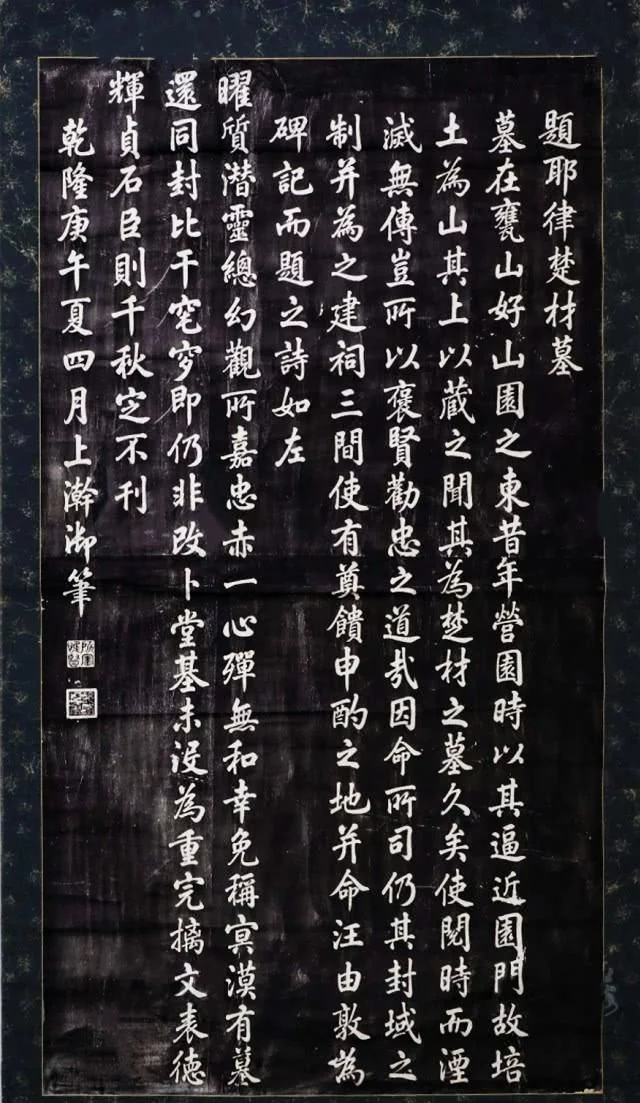 題耶律楚材墓
墓在甕山好山園之東昔年營園時以其逼近園門故培
土為山其上以蔵之聞其為楚材之墓久矣使閱時而湮
滅無傳豈所以褒賢勸忠之道㢤因命所司仍其封域之
制并為之建祠三間使有奠饋申酌之地并命汪由敦為
碑記而題之詩如左
曜質潜靈總幻觀所嘉忠赤一心殫無和幸免稱冥漠有墓
還同封比干窀穸即仍非改卜堂基未没為重完摛文表徳
輝貞石臣則千秋定不刊
乾隆庚午夏四月上澣御筆